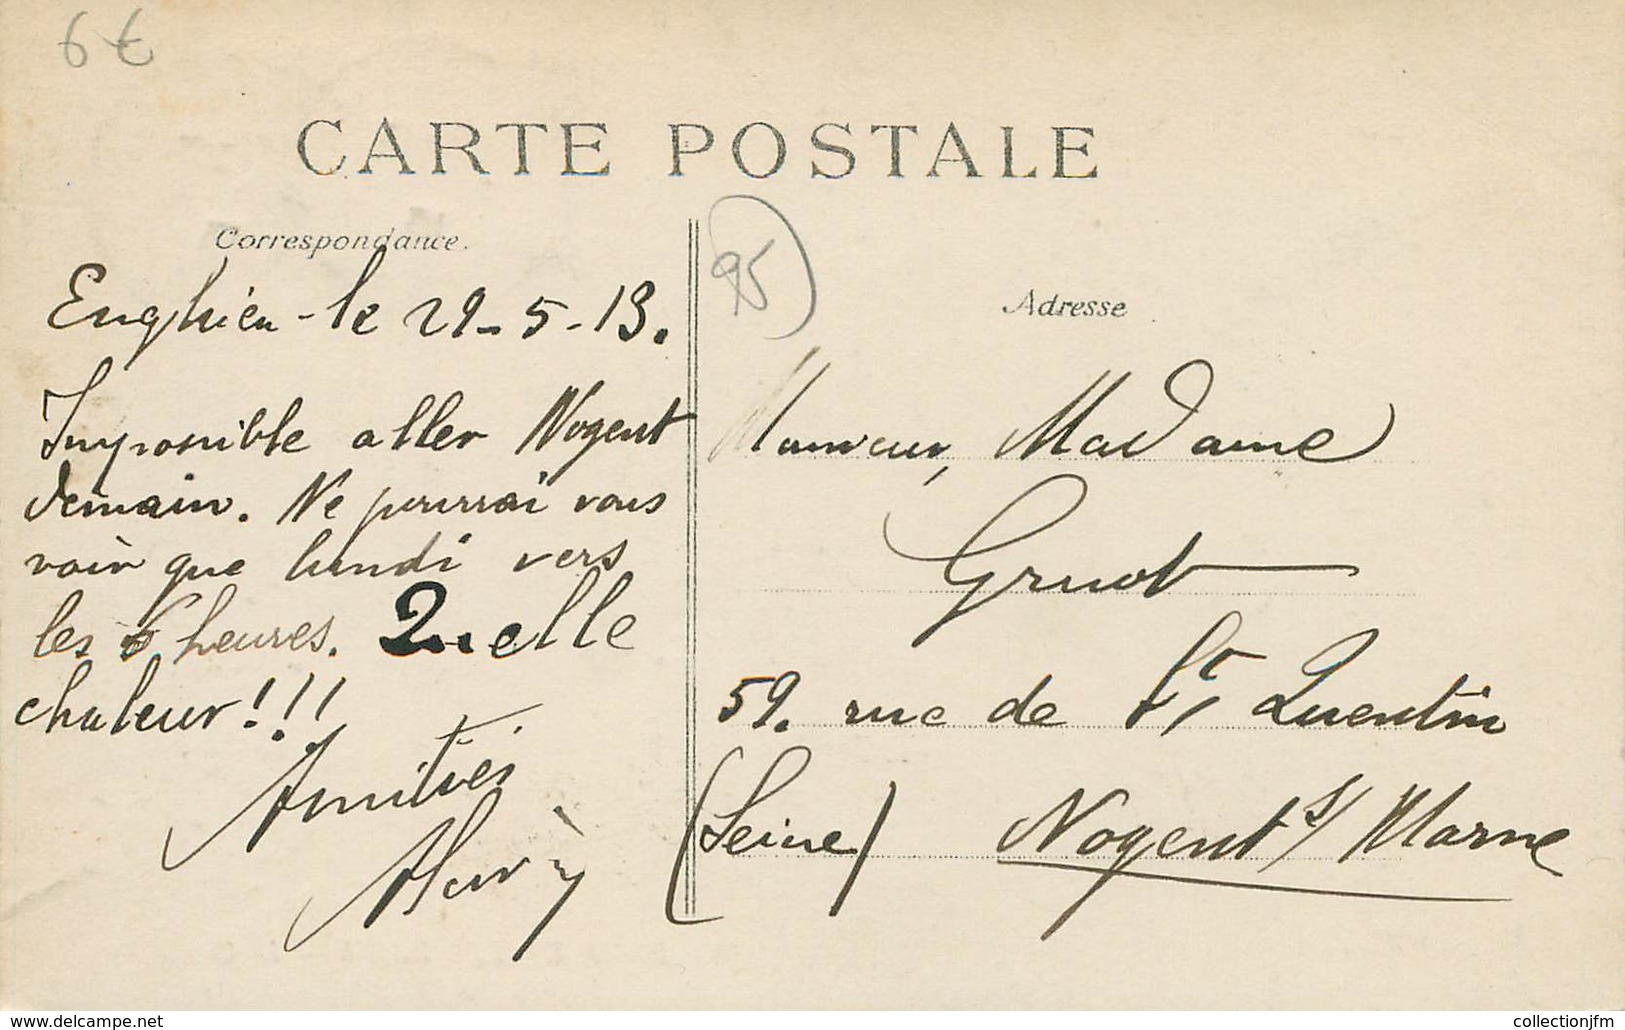 6€
CARTE POSTALE
Correspondance.
Enghien - le 29-5-13.
Impossible aller Nogent
demain. Ne pourrai vous
voir que lundi vers
les 6 heures. Quelle
chaleur!!!
Amitiés
95
Adresse
Monsieur, Madame
Gruot
59. rue de St Quentin
(Seine) Nogent s/ Marne
www.delcampe.net
collectionjfm